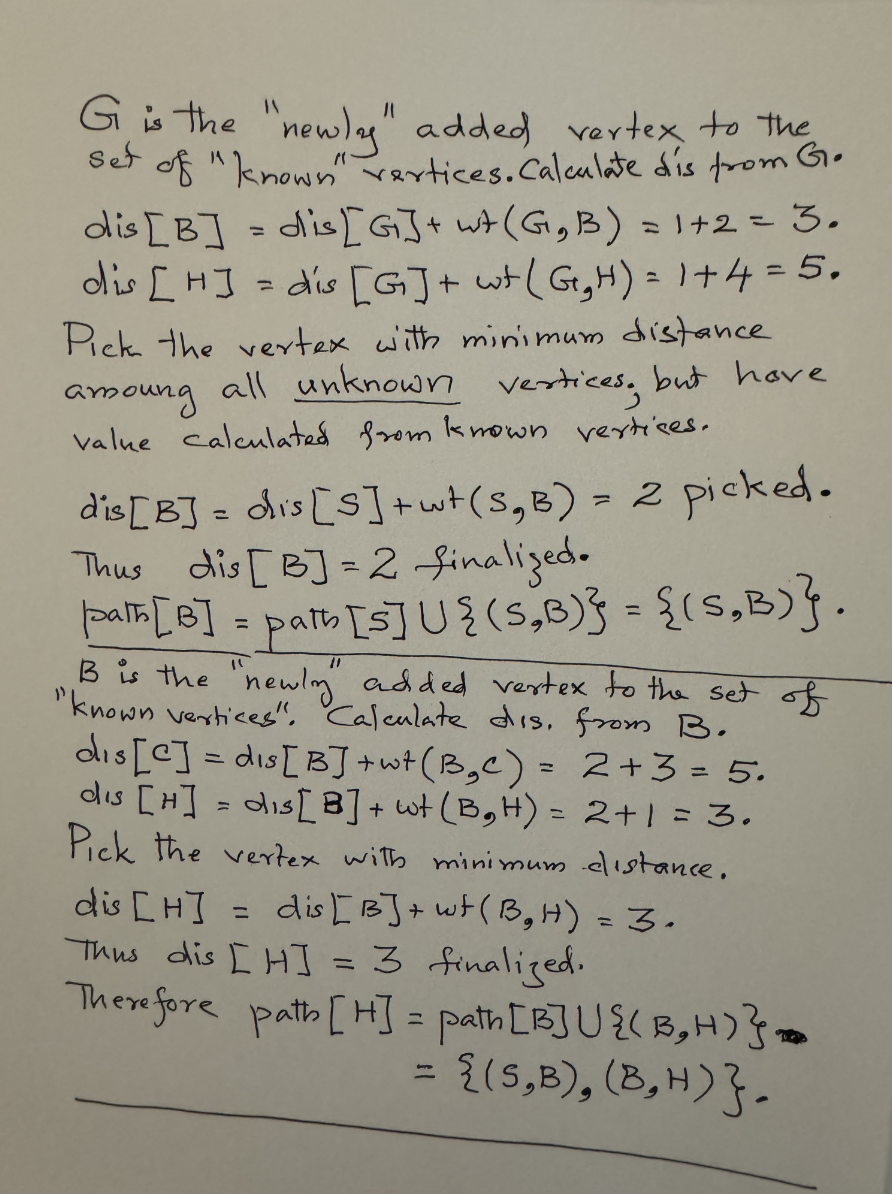 G is the "newly" added vertex to the
set of "known" vertices. Calculate dis from G.
dis[B] = dis[G] + wt(G,B) = 1+2 = 3.
dis [H] = dis [G] + wt(G,H) = 1+4 = 5.
Pick the vertex with minimum distance
amoung all unknown vertices, but have
value calculated from known vertices.
dis[B] = dis[S] + wt(S,B) = 2 picked.
Thus dis[B] = 2 finalized.
path[B] = path[S] U {(S,B)} = {(S,B)}.
B is the "newly" added vertex to the set of
"known vertices". Calculate dis. from B.
dis[C] = dis[B] + wt(B,C) = 2+3 = 5.
dis [H] = dis[B] + wt(B,H) = 2+1 = 3.
Pick the vertex with minimum distance.
dis [H] = dis[B] + wt(B,H) = 3.
Thus dis [H] = 3 finalized.
Therefore path[H] = path[B] U {(B,H)}
= {(S,B), (B,H)}.